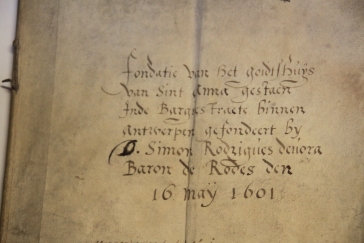 Fondatie van het goidtshuÿs
van Sint Anna gestaen
Inde Bargestraete binnen
Antwerpen gefondeert by
D. Simon Rodrigues devora
Baron de Rodes den
16 maÿ 1601